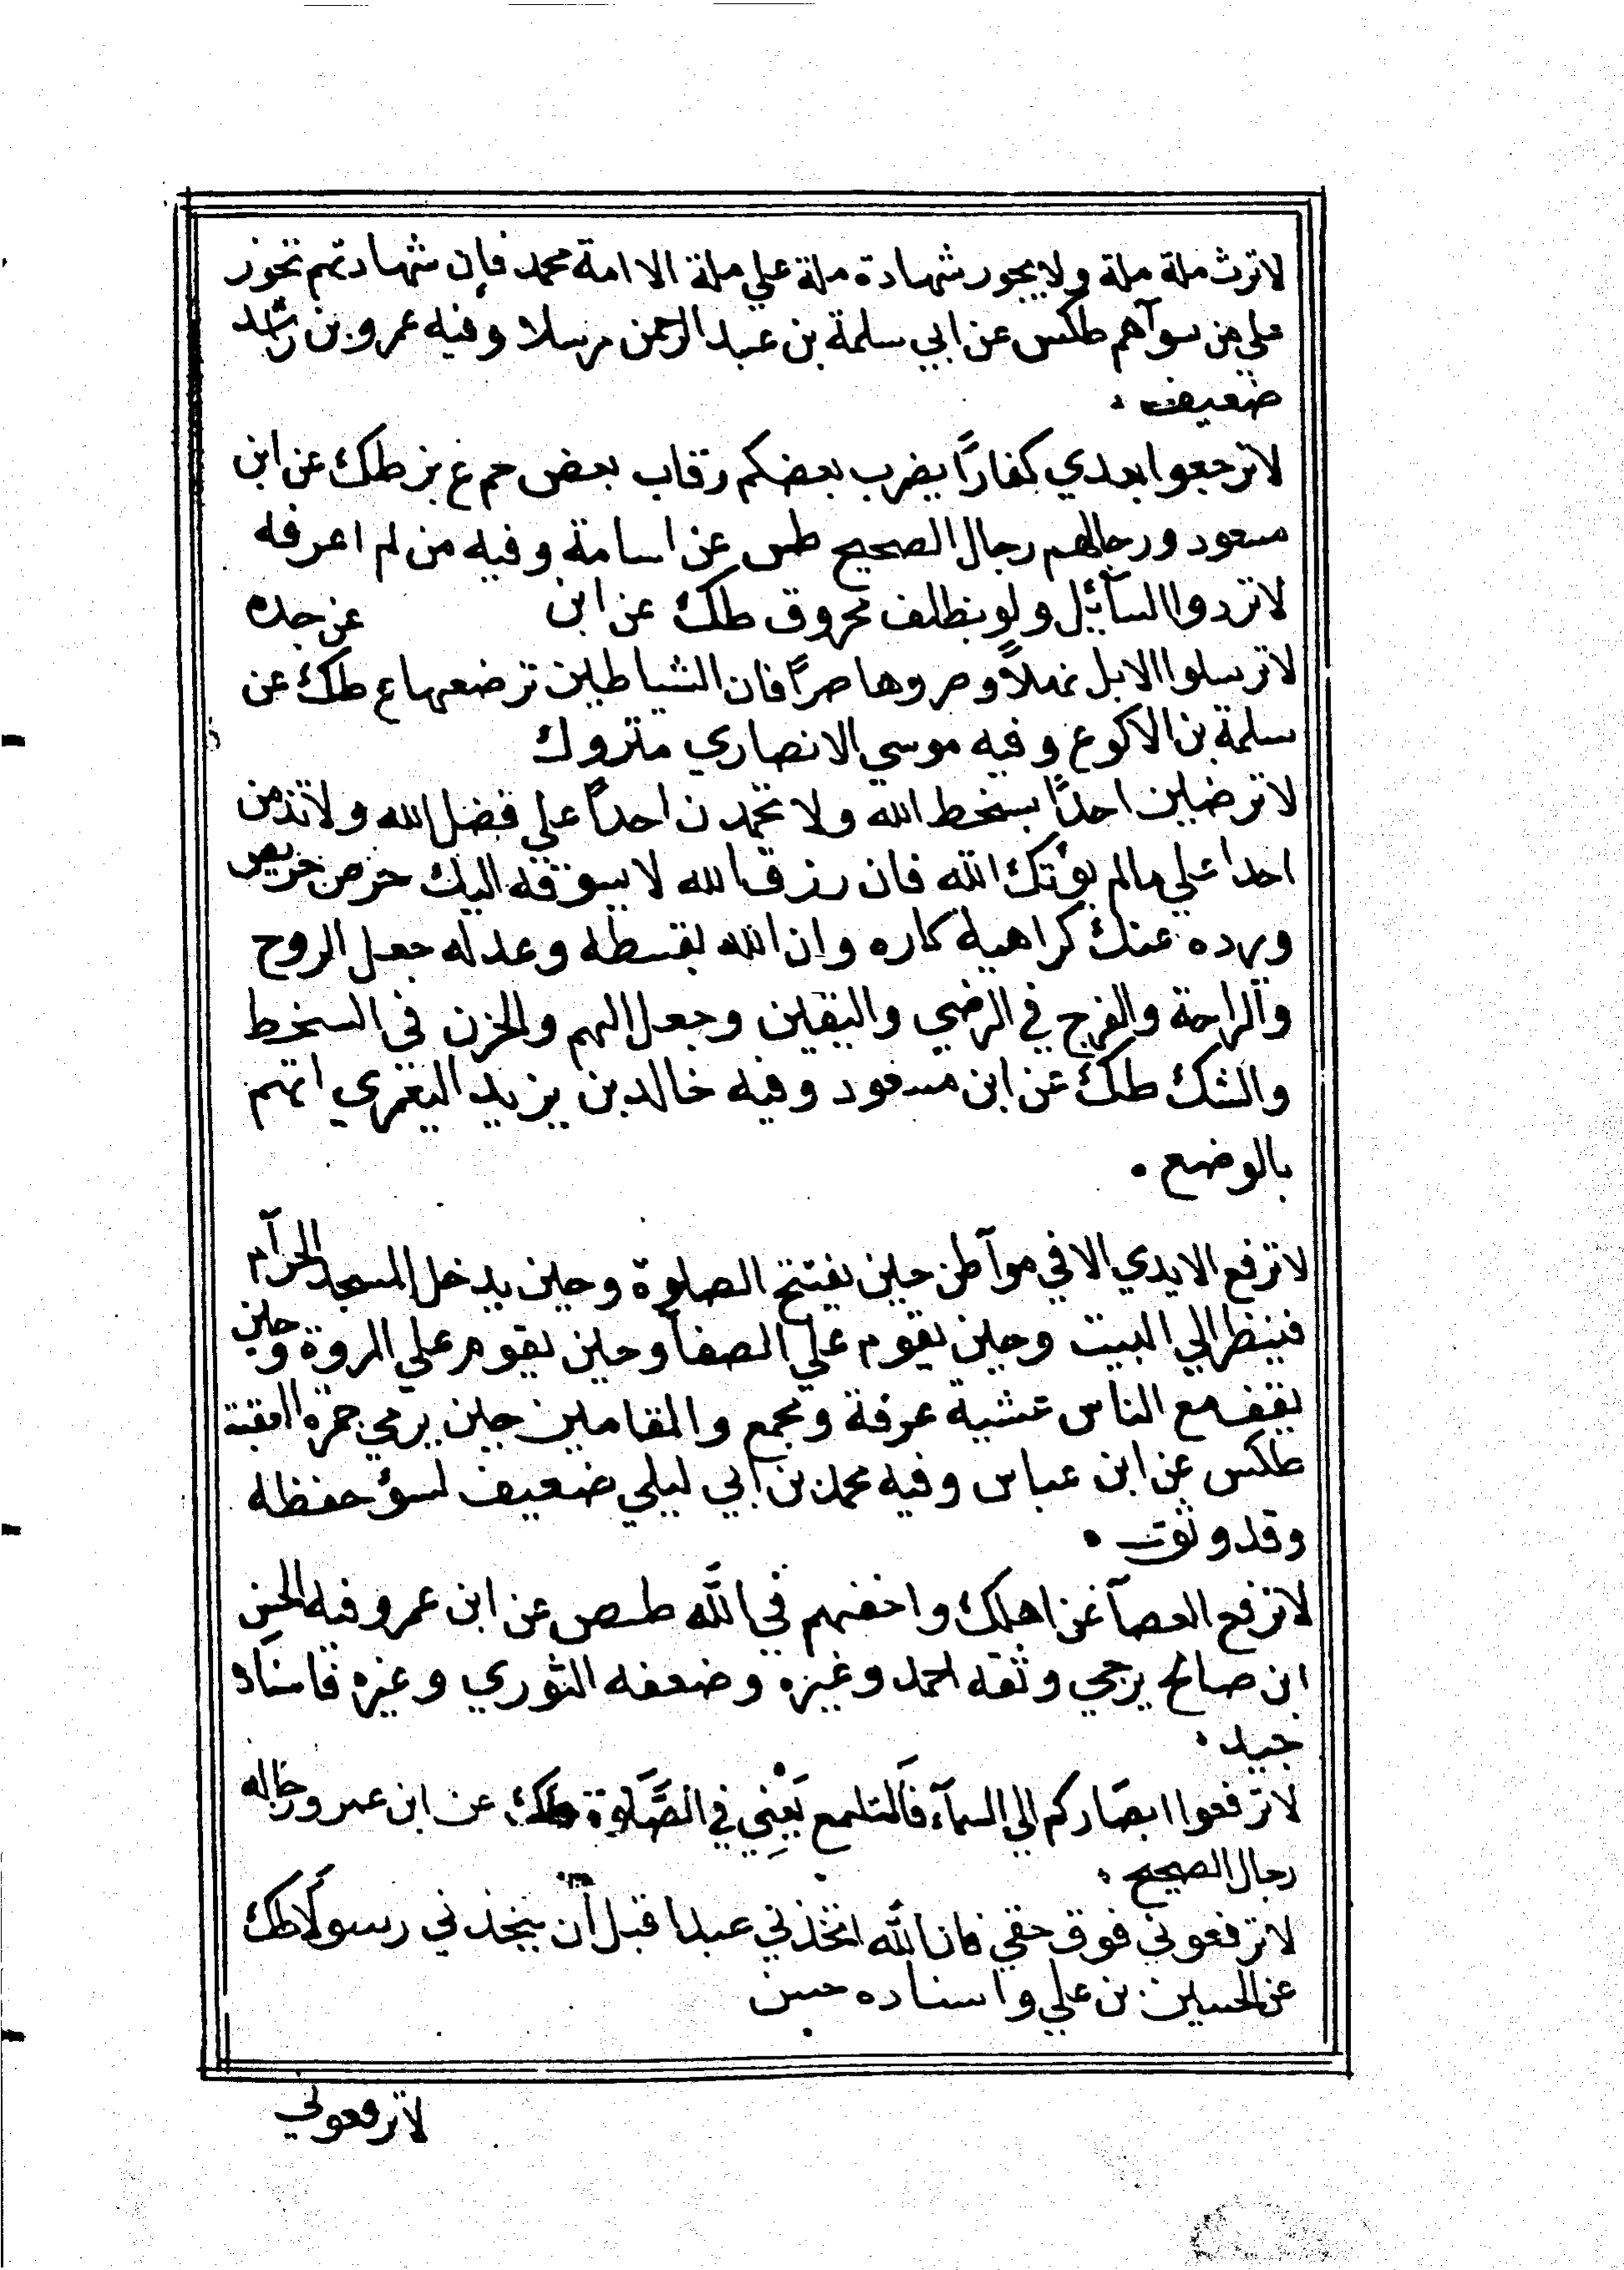 لاترث ملة ملة ولا يجور شهادة ملة علي ملة الا امة محمد فان شهادتهم تجوز
علي من سوآهم طكس عن ابي سلمة بن عبد الرحمن مرسلا وفيه عمرو بن راشد
ضعيف .
لا ترجعوا بعدي كفارًا يضرب بعضكم رقاب بعض حم ع بز طك عن ابن
مسعود ورجالهم رجال الصحيح طس عن اسامة وفيه من لم اعرفه
لا تردوا السآئل ولو بظلف محروق طك عن ابن عن جده
لا ترسلوا الابل نهلاً وصروها صرًا فان الشياطين ترضعها ع طك عن
سلمة بن الاكوع وفيه موسي الانصاري متروك
لا ترضين احدًا بسخط الله ولا تحمدن احداً علي فضل الله ولا تذمن
احدا علي مالم يؤتك الله فان رزق الله لا يسوقه اليك حرص حريص
ويرده عنك كراهية كاره وان الله بقسطه وعدله جعل الروح
والراحة والفرج في الرضي واليقين وجعل الهم والحزن في السخط
والشك طك عن ابن مسعود وفيه خالد بن يزيد العمري اتهم
بالوضع .
لا ترفع الايدي الا في موآطن حين يفتتح الصلوة وحين يدخل المسجد الحرآم
فينظر الي البيت وحين يقوم علي الصفا وحين يقوم علي المروة وحين
يقف مع الناس عشية عرفة وبجمع والمقامين حين يرمي جمرة العقبة
طكس عن ابن عباس وفيه محمد بن ابي ليلي ضعيف لسؤ حفظه
وقد وثق .
لا ترفع العصآ عن اهلك واخفهم في اللَّه طسص عن ابن عمر وفيه الحسن
ابن صالح يرجي وثقه احمد وغيره وضعفه الثوري وغيره فاسناد
جيد .
لا ترفعوا ابصَاركم الي السمآء فَالتلمع يَعْنِي في الصَّلوة طك عن ابن عمر ورجاله
رجال الصحيح .
لا ترفعوني فوق حقي فان اللَّه اتخذني عبدا قبل أن يتخذني رسولًا طك
عن الحسين بن علي واسناده حسن
لا ترفعوني